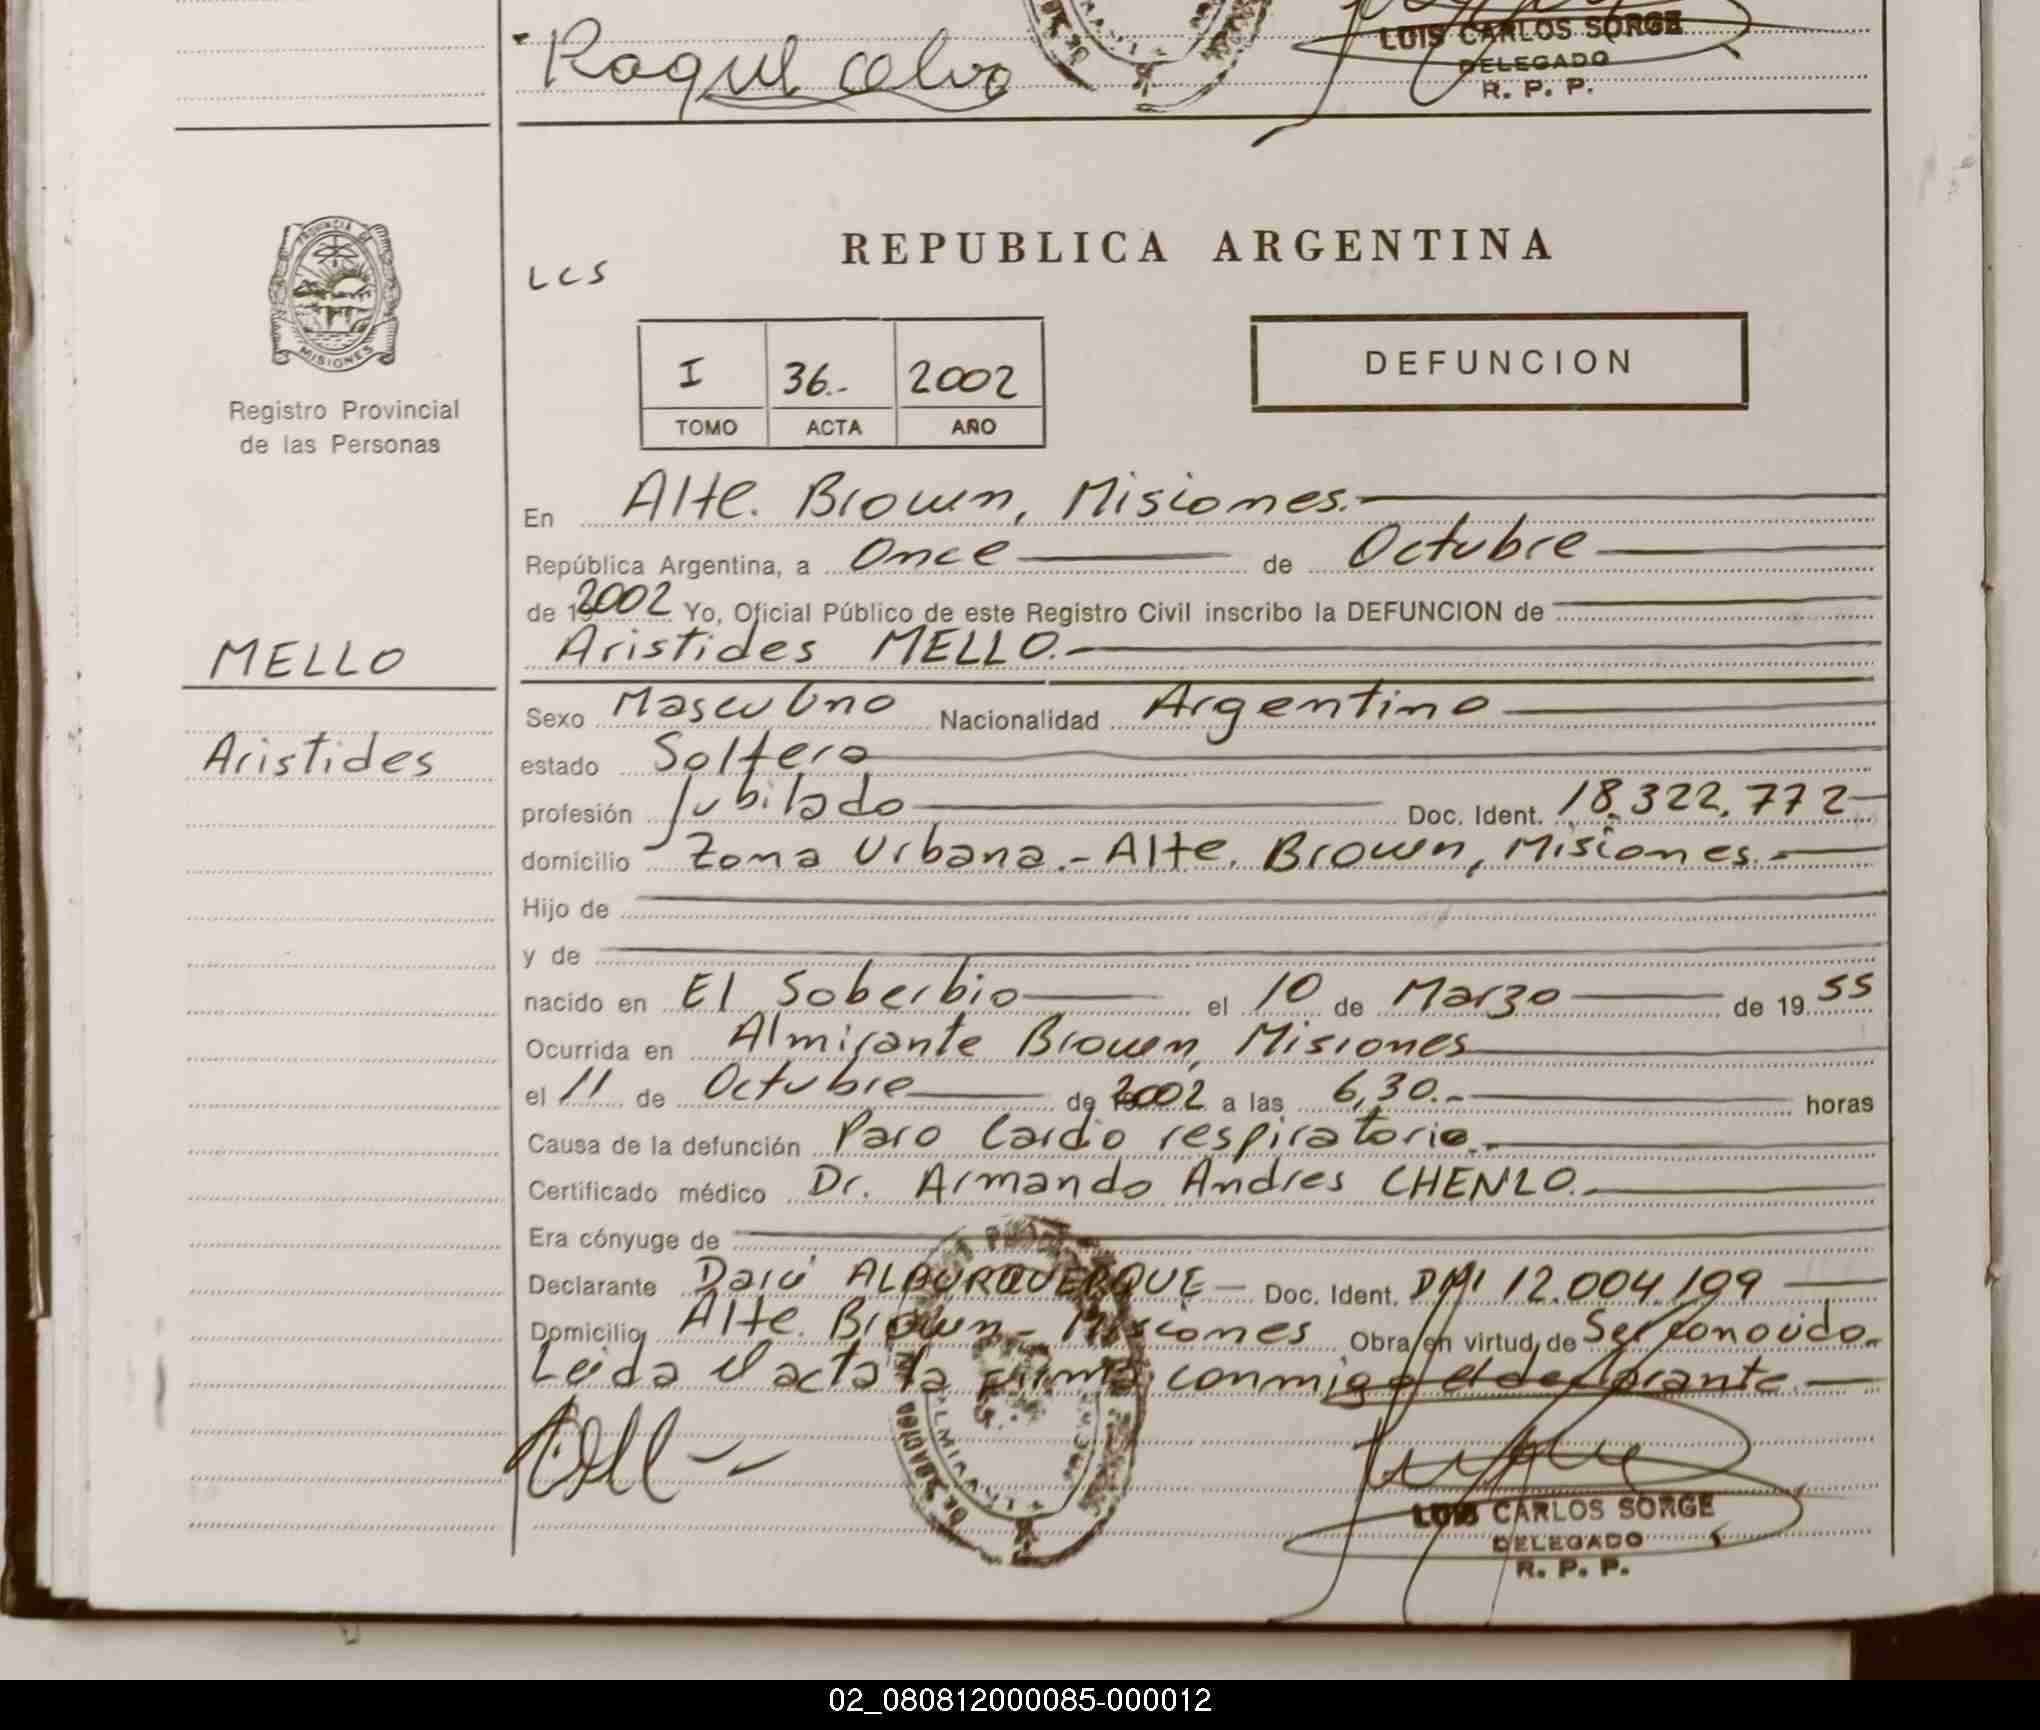 Raquel
LUIS CARLOS SORGE
DELEGADO
R. P. P.
PROVINCIA DE
MISIONES
Registro Provincial
de las Personas
LCS
REPUBLICA ARGENTINA
I 36.- 2002
TOMO ACTA AÑO
DEFUNCION
En Alte. Brown, Misiones.-
República Argentina, a Once de Octubre
de 2002 Yo, Oficial Público de este Registro Civil inscribo la DEFUNCION de
MELLO
Aristides MELLO.-
Sexo Masculino Nacionalidad Argentino
Aristides
estado Soltero
profesión Jubilado Doc. Ident. 18.322.772
domicilio Zona Urbana.- Alte. Brown, Misiones.-
Hijo de
y de
nacido en El Soberbio el 10 de Marzo de 1955
Ocurrida en Almirante Brown, Misiones
el 11 de Octubre de 2002 a las 6,30.- horas
Causa de la defunción Paro Cardio respiratorio.-
Certificado médico Dr. Armando Andres CHENLO.-
Era cónyuge de
Declarante Darú ALBURQUERQUE Doc. Ident. DMI 12.004.199
Domicilio Alte. Brown - Misiones Obra en virtud de Ser conocido.-
Leida el acta la firma conmigo el declarante.-
LUIS CARLOS SORGE
DELEGADO
R. P. P.
02_080812000085-000012